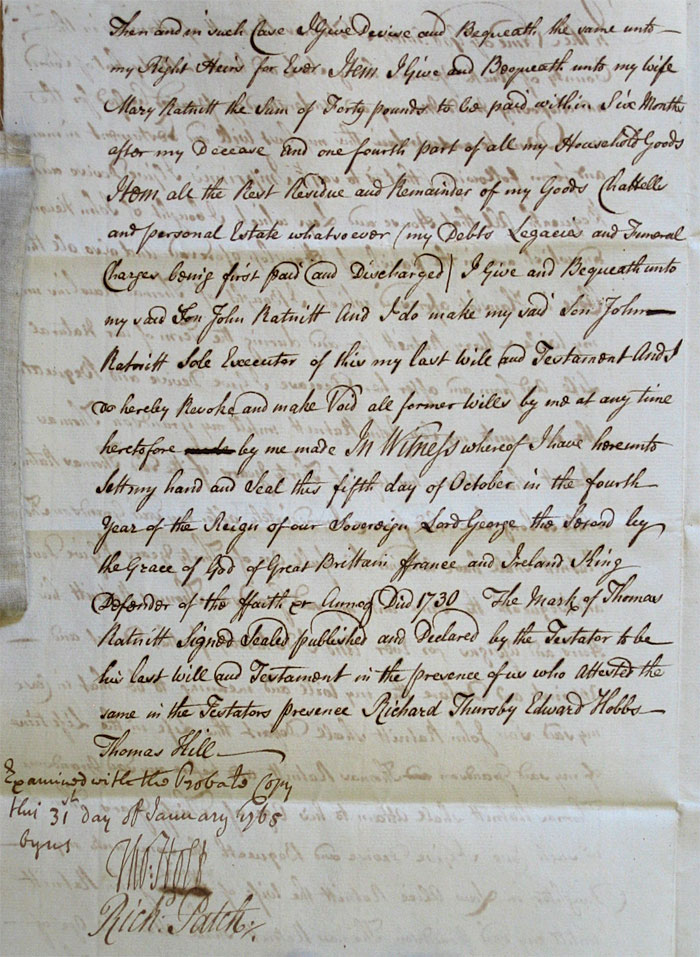 Then and in such Case I Give Devise and Bequeath the same unto
my Right Heirs for Ever Item I Give and Bequeath unto my wife
Mary Ratnitt the Sum of Forty pounds to be paid within Six Months
after my Decease And one fourth part of all my Household Goods
Item all the Rest Residue and Remainder of my Goods Chattells
and personal Estate whatsoever (my Debts Legacies and Funeral
Charges being first paid and Discharged) I Give and Bequeath unto
my said Son John Ratnitt And I do make my said Son John
Ratnitt Sole Executor of this my last Will and Testament And I
do hereby Revoke and make Void all former Wills by me at any time
heretofore made by me made In Witness whereof I have hereunto
Sett my hand and Seal this fifth day of October in the fourth
Year of the Reign of our Sovereign Lord George the Second by
the Grace of God of Great Brittain ffrance and Ireland King
Defender of the ffaith &c Annoq Dni 1730 The Mark of Thomas
Ratnitt Signed Sealed published and Declared by the Testator to be
his last Will and Testament in the presence of us who Attested the
same in the Testators presence Richard Thursby Edward Hobbs
Thomas Hill
Examined with the Probate Copy
this 31st day of January 1765
by us
Tho: Holt
Richd. Patch